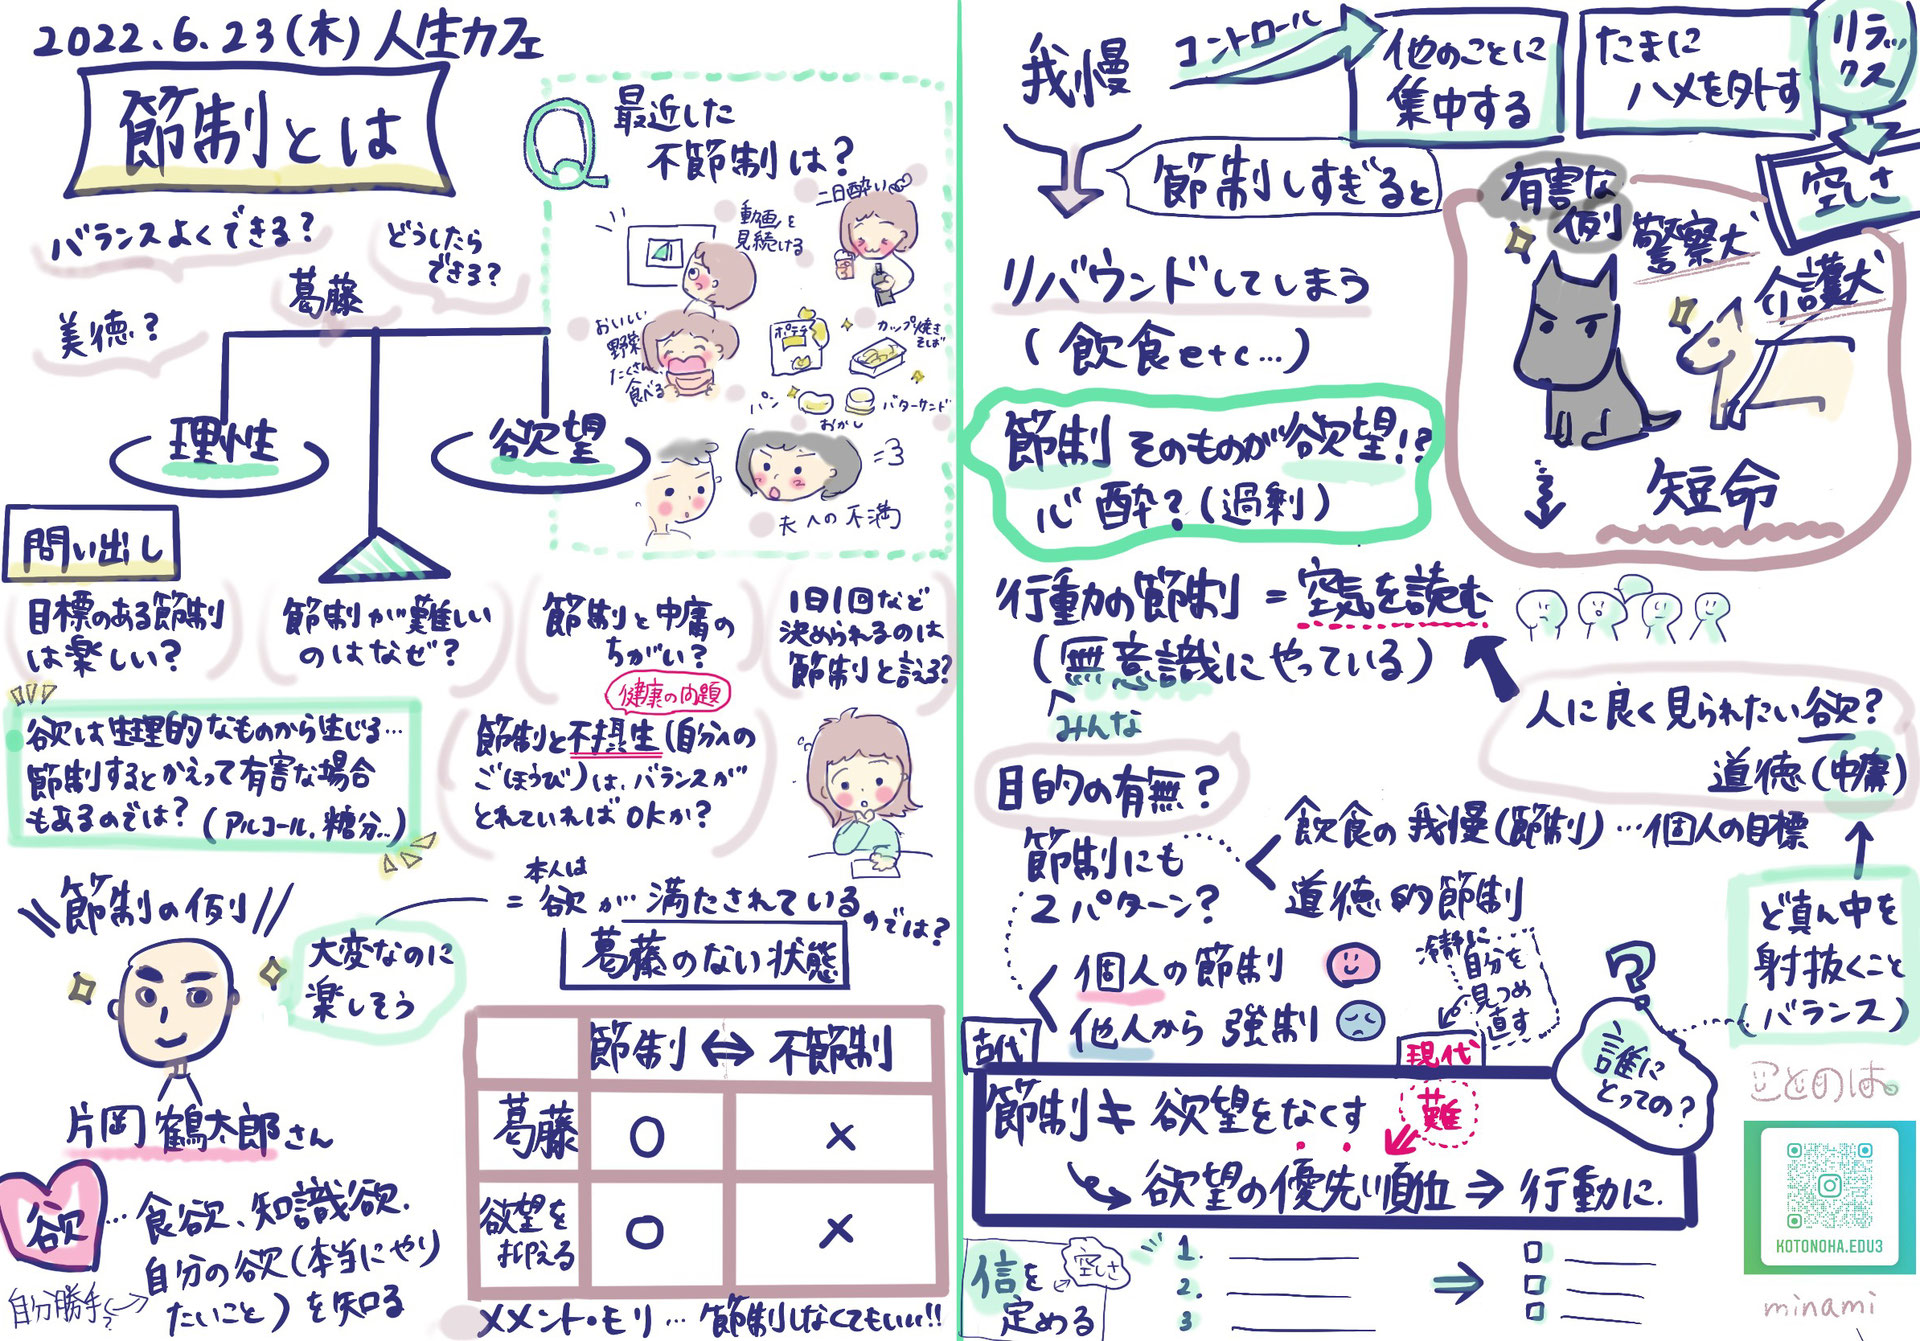 2022.6.23(木)人生カフェ
節制とは
バランスよくできる?
どうしたら
できる?
葛藤
美徳?
理性
欲望
Q 最近した
不節制は?
二日酔い
動画を
見続ける
おいしい
野菜
たくさん
食べる
ポテチ
カップ焼き
そば
パン
バターサンド
おかし
=3
夫への不満
問い出し
目標のある節制
は楽しい?
節制が難しい
のはなぜ?
節制と中庸の
ちがい?
1日1回など
決められるのは
節制と言える?
欲は生理的なものから生じる…
節制するとかえって有害な場合
もあるのでは?(アルコール、糖分…)
健康の問題
節制と不摂生(自分への
ごほうび)は、バランスが
とれていればOKか?
節制の例
大変なのに
楽しそう
本人は
=欲が満たされているのでは?
葛藤のない状態
片岡鶴太郎さん
節制⇔不節制
葛藤 ○ ×
欲望を
抑える ○ ×
欲…食欲、知識欲、
自分の欲(本当にやり
たいこと)を知る
自分勝手?
メメント・モリ…節制しなくてもいい!!
我慢
コントロール
他のことに
集中する
たまに
ハメを外す
リラックス
空しさ
節制しすぎると
リバウンドしてしまう
(飲食etc…)
有害な
例
警察犬
介護犬
短命
節制そのものが欲望!?
心酔?(過剰)
行動の節制=空気を読む
(無意識にやっている)
みんな
人に良く見られたい欲?
道徳(中庸)
目的の有無?
節制にも
2パターン?
飲食の我慢(節制)…個人の目標
道徳的節制
個人の節制
他人から強制
冷静に
自分を
見つめ
直す
ど真ん中を
射抜くこと
(バランス)
誰に
とっての?
?
古代
現代
節制≠欲望をなくす
難
欲望の優先順位⇒行動に.
信を
定める
空しさ
1.
2.
3
ことのは。
KOTONOHA.EDU3
minami